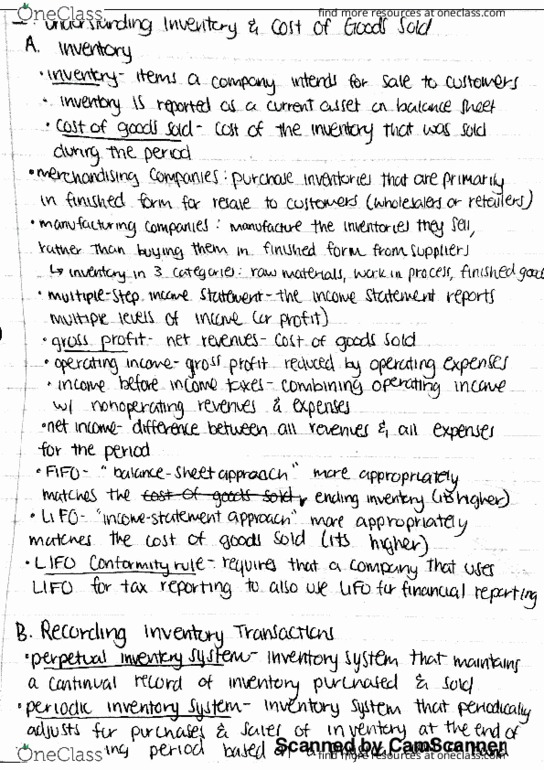 OneClass find more resources at oneclass.com
I. Understanding Inventory & Cost of Goods Sold
A. Inventory
• inventory- items a company intends for sale to customers
• inventory is reported as a current asset on balance sheet
• cost of goods sold - cost of the inventory that was sold
during the period
• merchandising companies: purchase inventories that are primarily
in finished form for resale to customers (wholesalers or retailers)
• manufacturing companies: manufacture the inventories they sell,
rather than buying them in finished form from suppliers
↳ inventory in 3 categories: raw materials, work in process, finished good
• multiple-step income statement- the income statement reports
multiple levels of income (or profit)
• gross profit- net revenues- cost of goods sold
• operating income- gross profit reduced by operating expenses
• income before income taxes- combining operating income
w/ nonoperating revenues & expenses
• net income- difference between all revenues & all expenses
for the period
• FIFO- "balance-sheet approach" more appropriately
matches the cost of goods sold, ending inventory (is higher)
• LIFO- "income-statement approach" more appropriately
matches the cost of goods sold (its higher)
• LIFO Conformity rule- requires that a company that uses
LIFO for tax reporting to also use LIFO for financial reporting
B. Recording Inventory Transactions
• perpetual inventory system- inventory system that maintains
a continual record of inventory purchased & sold
• periodic inventory system- inventory system that periodically
adjusts for purchases & sales of inventory at the end of
ing period based on a
Scanned by CamScanner
OneClass find more resources at oneclass.com